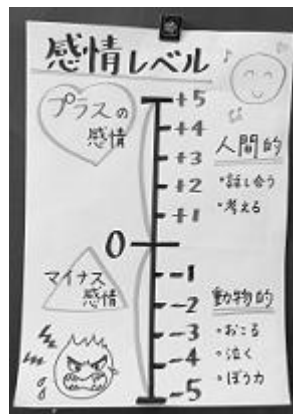 感情レベル
プラスの
感情
+5
+4
+3
+2
+1
0
-1
-2
-3
-4
-5
人間的
・話し合う
・考える
マイナス
感情
動物的
・おこる
・泣く
・ぼう力